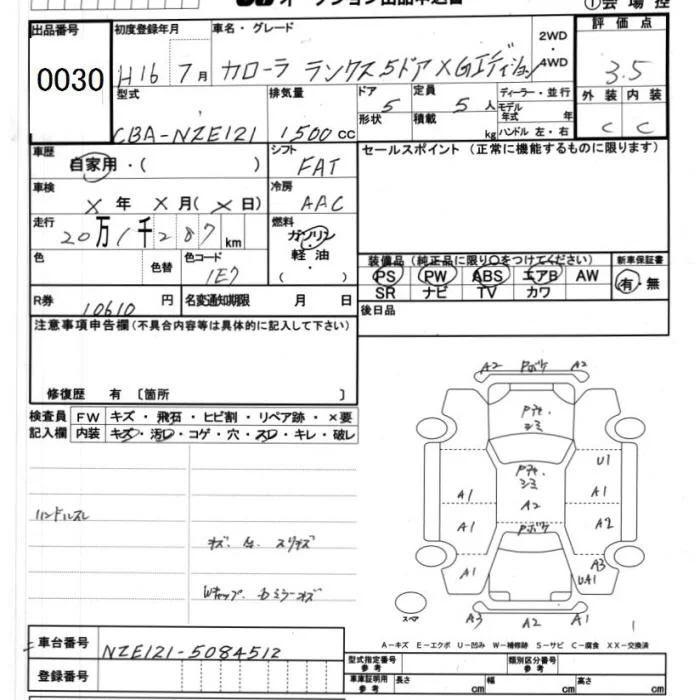 オークション出品申込書
①会場控
出品番号 初度登録年月 車名・グレード 2WD・4WD 評価点
0030 H16 7月 カローラ ランクス5ドア XGエディション 3.5
型式 排気量 ドア 5 定員 5人 ディーラー・並行 外装 内装
CBA-NZE121 1500cc 形状 積載 kg モデル年式 年 C C
ハンドル 左・右
車歴 シフト セールスポイント (正常に機能するものに限ります)
自家用・( ) FAT
車検 冷房
X年 X月(X日) AAC
走行 燃料
20万1千287km ガソリン・
軽油・
色 色替 色コード ( )
1E7
装備品(純正品に限り○をつけてください) 新車保証書
PS PW ABS エアB AW 有・無
SR ナビ TV カワ
R券 10610円 名変通知期限 月 日
後日品
注意事項申告欄(不具合内容等は具体的に記入して下さい)
修復歴 有 [箇所 ]
検査員 FW キズ・飛石・ヒビ割・リペア跡・×要
記入欄 内装 キズ・汚レ・コゲ・穴・スレ・キレ・破レ
A2 Pボケ A2
Pアセ・
シミ
Pアセ・
シミ
U1
A1 A2 A1
A1 Pボケ A2
A1 A3
UA1
スペア A3 A2 A1
1
ハンドルスレ
キズ、 スリキズ
Wキャップ、 ミラーキズ
車台番号 NZE121-5084512
登録番号
A-キズ E-エクボ U-凹み W-補修跡 S-サビ C-腐食 XX-交換済
型式指定番号 参考 類別区分番号 参考
車庫証明用 参考 長さ cm 幅 cm 高さ cm